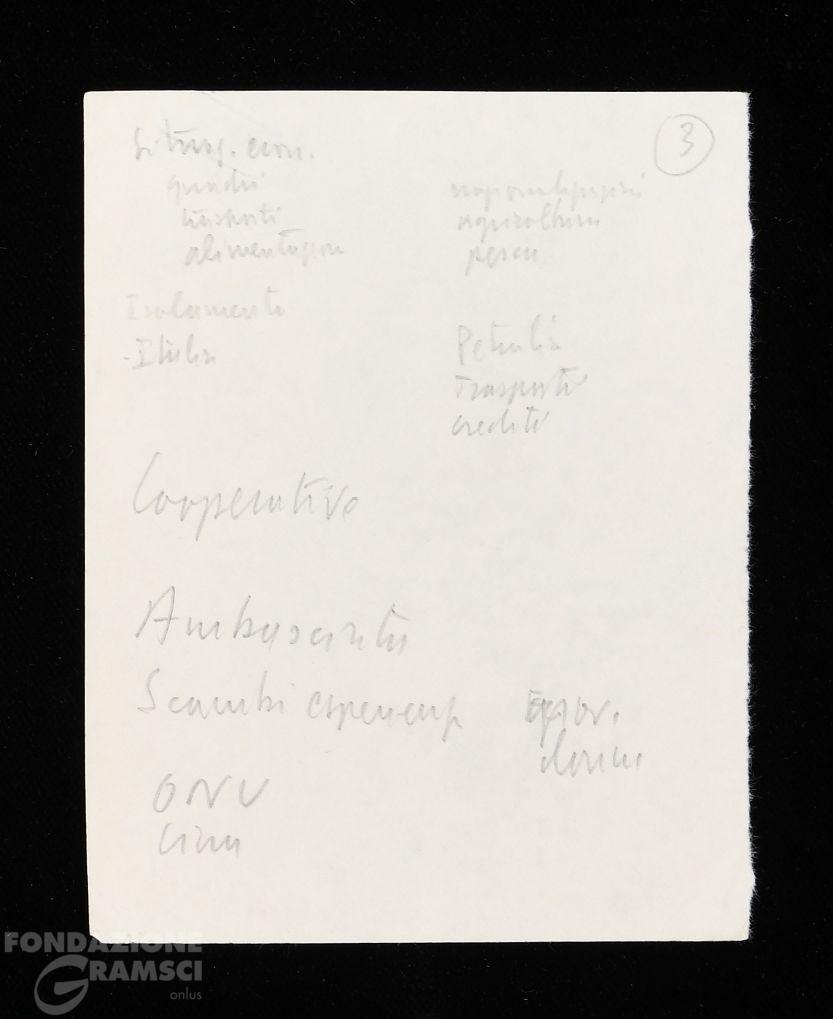 3
Situaz. econ.
quadri
trasporti
alimentazion
agricoltura
pesca
Isolamento
-Italia
Petrolio
Trasporti
crediti
Cooperative
Ambasciata
Scambi esperienze
giov.
donne
ONU
Cina
FONDAZIONE
GRAMSCI
onlus